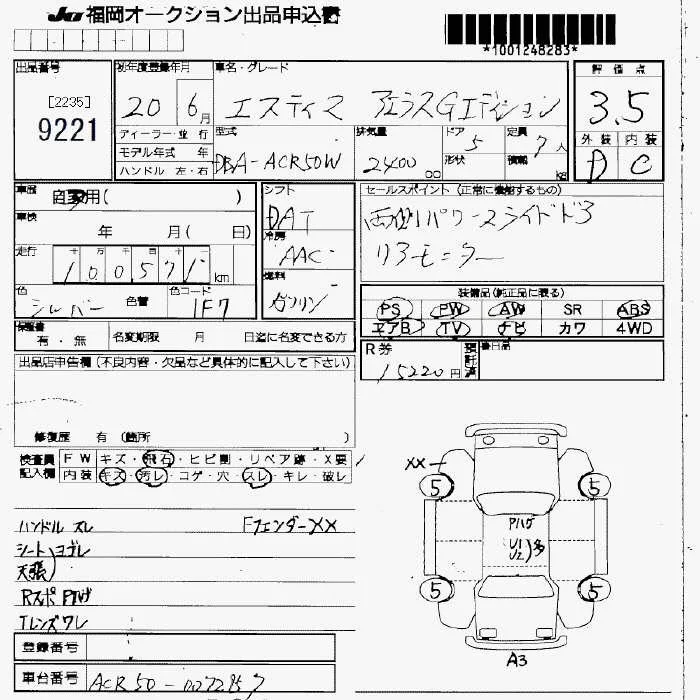 JU福岡オークション出品申込書
*1001248283*
出品番号
[2235]
9221
初年度登録年月
20 6月
ディーラー・並 行
モデル年式 年
ハンドル 左・右
車名・グレード
エスティマ アエラスGエディション
型式
DBA-ACR50W
排気量
2400
cc
ドア
5
形状
定員
7人
積載
kg
評価点
3.5
外装 内装
D C
車歴
自家用( )
車検
年 月( 日)
走行
十 万 千 百 十 一
100571km
色
シルバー
色替
色コード
1F7
シフト
DAT
冷房
AAC
燃料
ガソリン
セールスポイント(正常に機能するもの)
両側パワースライドドア
リアモニター
装備品(純正品に限る)
PS PW AW SR ABS
エアB TV ナビ カワ 4WD
保証書
有・無
名変期限 月 日迄に名変できる方
R券
15220円
預託済
後日品
出品店申告欄(不良内容・欠品など具体的に記入して下さい)
修復歴 有(箇所 )
検査員記入欄
FW キズ・飛石・ヒビ割・リペア跡・X要
内装 キズ・汚レ・コゲ・穴・スレ・キレ・破レ
ハンドル スレ Fフェンダー××
シート)ヨゴレ
天張)
Rスポ Pハゲ
Tレンズワレ
登録番号
車台番号
ACR50-0072857
××
5 5
Pハゲ
U1
U2)多
5 5
A3